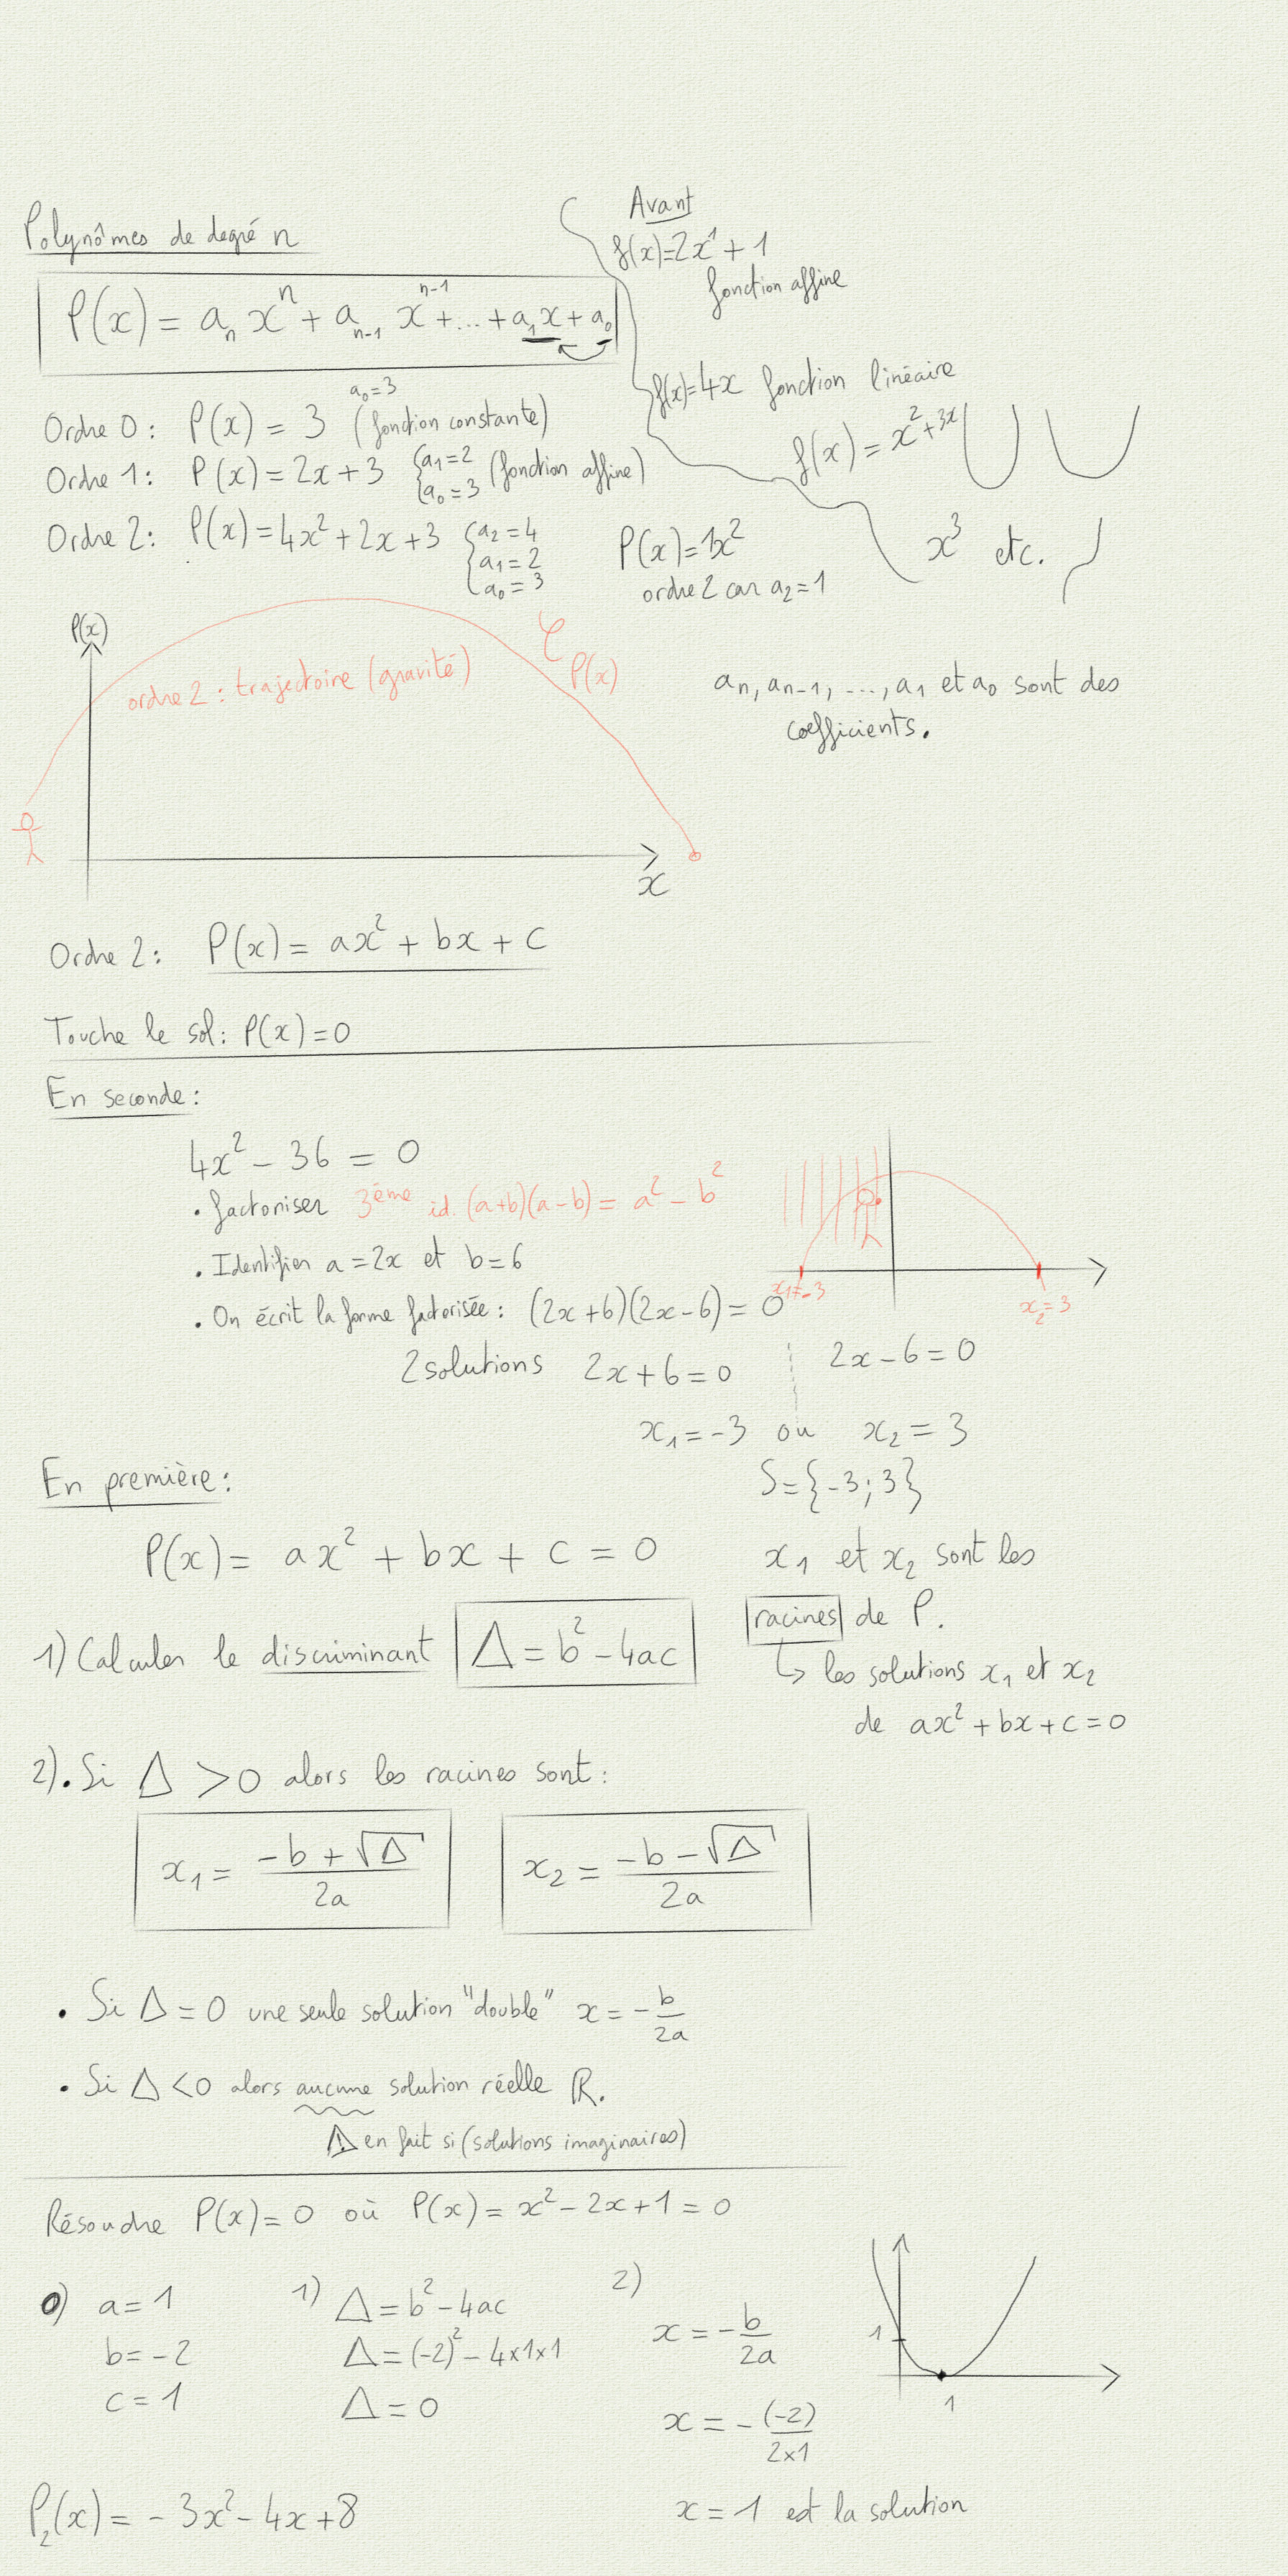 Avant
Polynômes de degré n
f(x)=2x¹+1
fonction affine
P(x) = aₙxⁿ + aₙ₋₁ xⁿ⁻¹ +...+ a₁x + a₀
f(x)=4x fonction linéaire
a₀=3
Ordre 0 : P(x) = 3 (fonction constante)
f(x) = x²+3x
Ordre 1 : P(x) = 2x+3 {a₁=2 a₀=3 (fonction affine)
Ordre 2 : P(x) = 4x²+2x+3 {a₂=4 a₁=2 a₀=3
P(x)=1x²
ordre 2 car a₂=1
x³ etc.
P(x)
ordre 2 : trajectoire (gravité)
C P(x)
aₙ, aₙ₋₁, ..., a₁ et a₀ sont des
coefficients.
x
Ordre 2 : P(x) = ax² + bx + c
Touche le sol : P(x)=0
En seconde :
4x² - 36 = 0
• factoriser 3ème id. (a+b)(a-b) = a² - b²
• Identifier a=2x et b=6
x₁=-3
x₂=3
• On écrit la forme factorisée : (2x+6)(2x-6) = 0
2 solutions 2x+6=0 2x-6=0
x₁=-3 ou x₂=3
S={-3;3}
En première :
P(x) = ax² + bx + c = 0
x₁ et x₂ sont les
racines de P.
↳ les solutions x₁ et x₂
de ax²+bx+c=0
1) Calculer le discriminant Δ = b² - 4ac
2) • Si Δ > 0 alors les racines sont :
x₁ = (-b + √Δ)/2a
x₂ = (-b - √Δ)/2a
• Si Δ = 0 une seule solution "double" x = -b/2a
• Si Δ < 0 alors aucune solution réelle ℝ.
⚠ en fait si (solutions imaginaires)
Résoudre P(x)=0 où P(x) = x²-2x+1 = 0
0) a=1
b=-2
c=1
1) Δ = b²-4ac
Δ = (-2)² - 4×1×1
Δ = 0
2)
x = -b/2a
x = -(-2)/2×1
x = 1 est la solution
1
1
P₂(x) = -3x²-4x+8